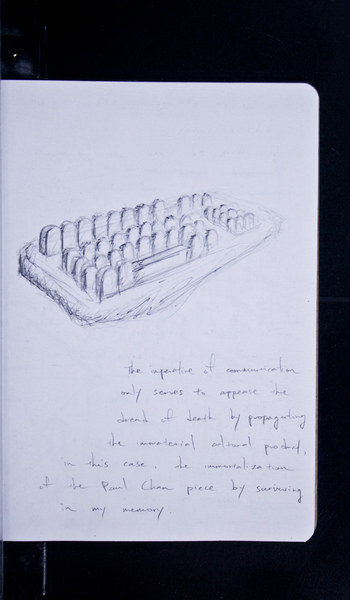 The imperative of communication
only serves to appease the
dread of death by propagating
the immaterial cultural product,
in this case. the immortalization
of the Paul Chan piece by surviving
in my memory.